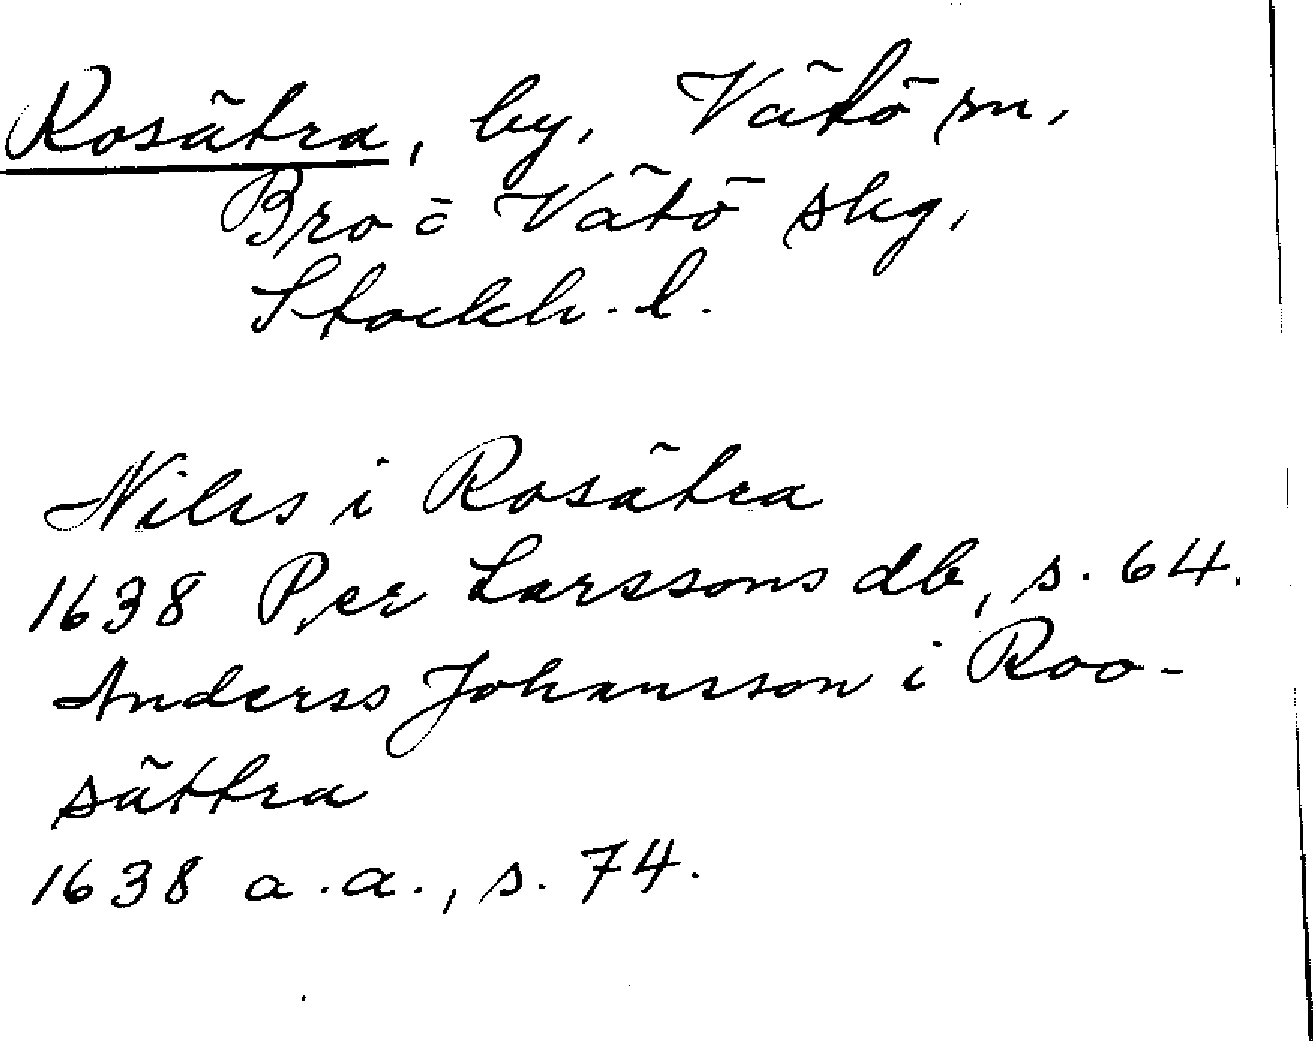 Rosätra, by, Vätö sn,
Bro o Vätö skg,
Stockh. l.
Nilss i Rosätra
1638 Per Larssons db, s. 64.
Anderss Johansson i Roo-
sättra
1638 a.a., s. 74.